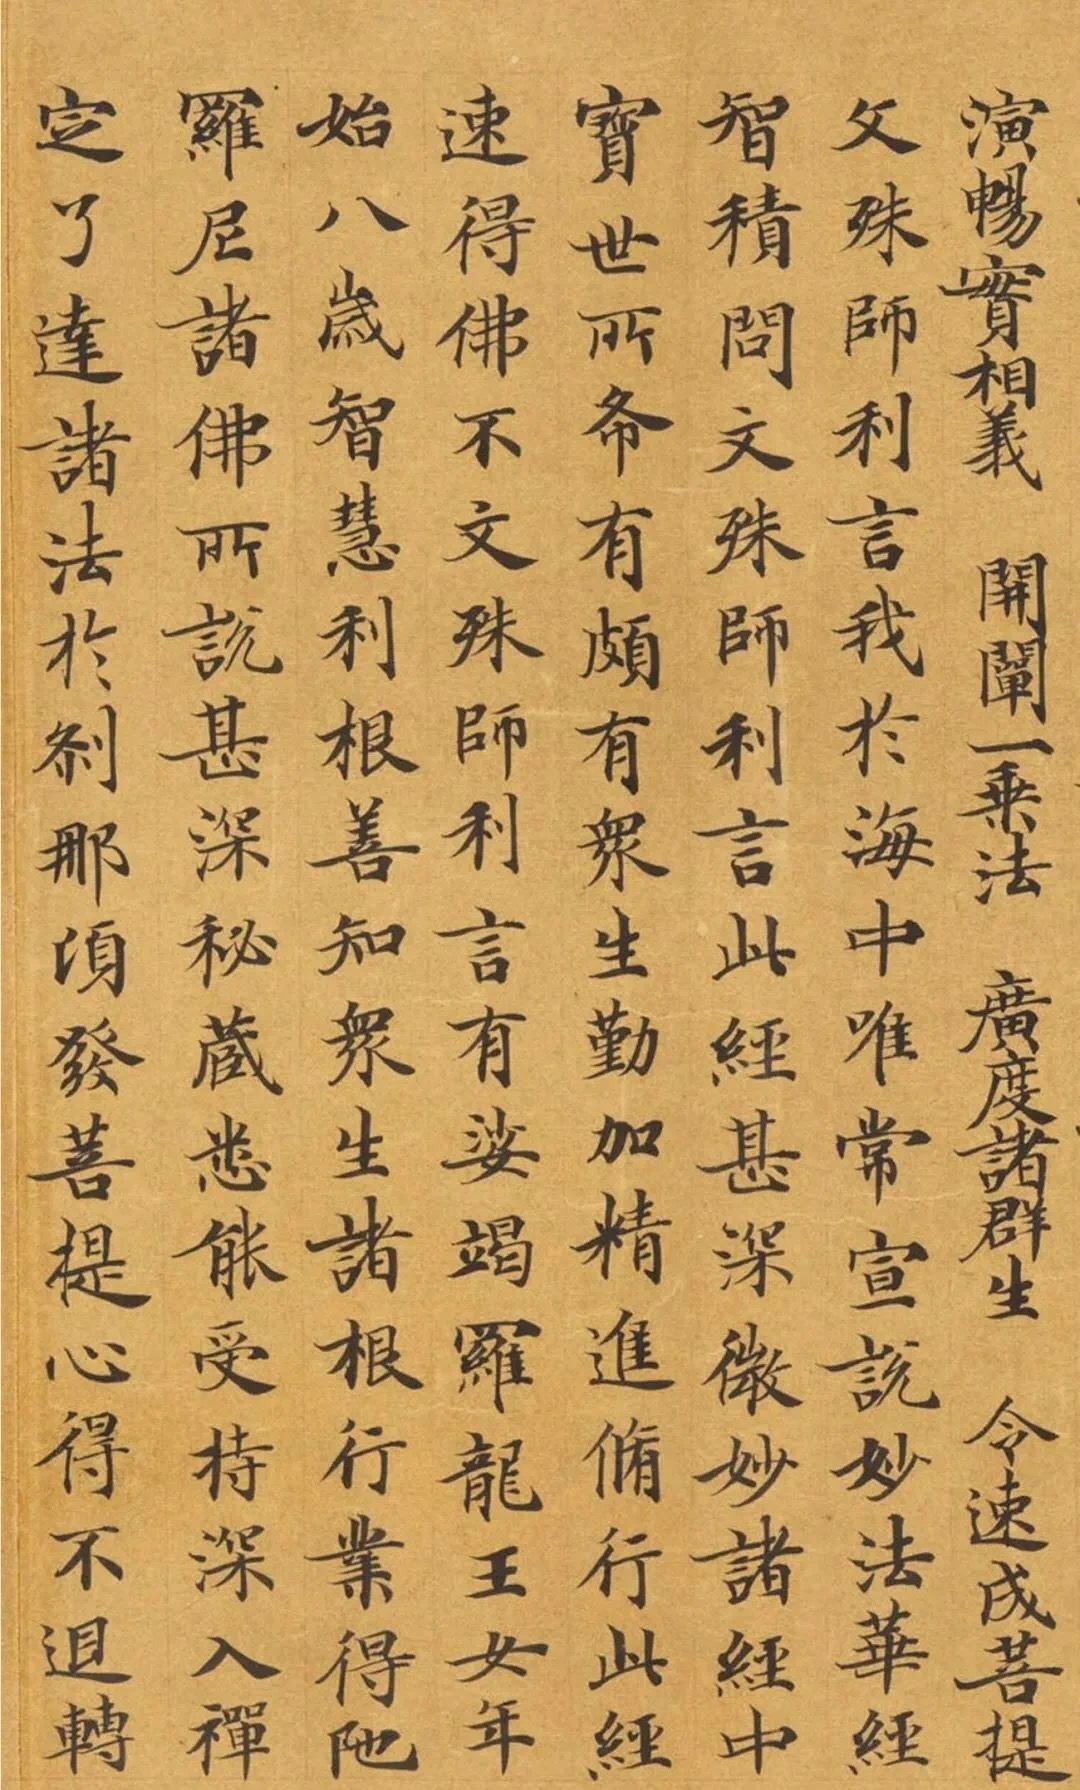 演暢實相義　開闡一乗法　廣度諸群生　令速成菩提
文殊師利言我於海中唯常宣説妙法華經
智積問文殊師利言此經甚深微妙諸經中
寶世所希有頗有衆生勤加精進脩行此經
速得佛不文殊師利言有娑竭羅龍王女年
始八歲智慧利根善知衆生諸根行業得陁
羅尼諸佛所説甚深秘蔵悉能受持深入禪
定了達諸法於剎那頃發菩提心得不退轉